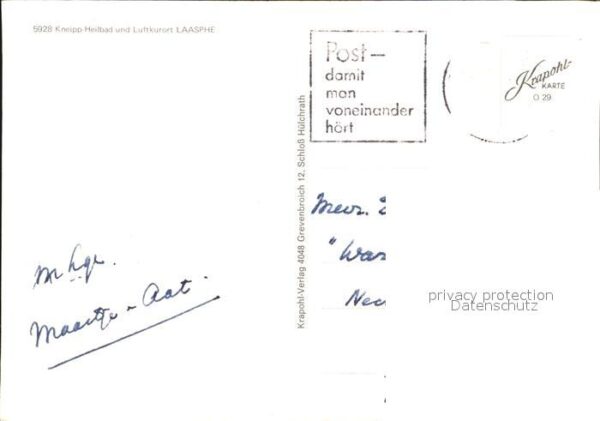 5928 Kneipp-Heilbad und Luftkurort LAASPHE
Post-
damit
man
voneinander
hört
Krapohl-
KARTE
O 29
Krapohl-Verlag 4048 Grevenbroich 12, Schloß Hülchrath
m. h. gr.
Maartje - Aat.
Mevr.
"War
Nec
privacy protection
Datenschutz